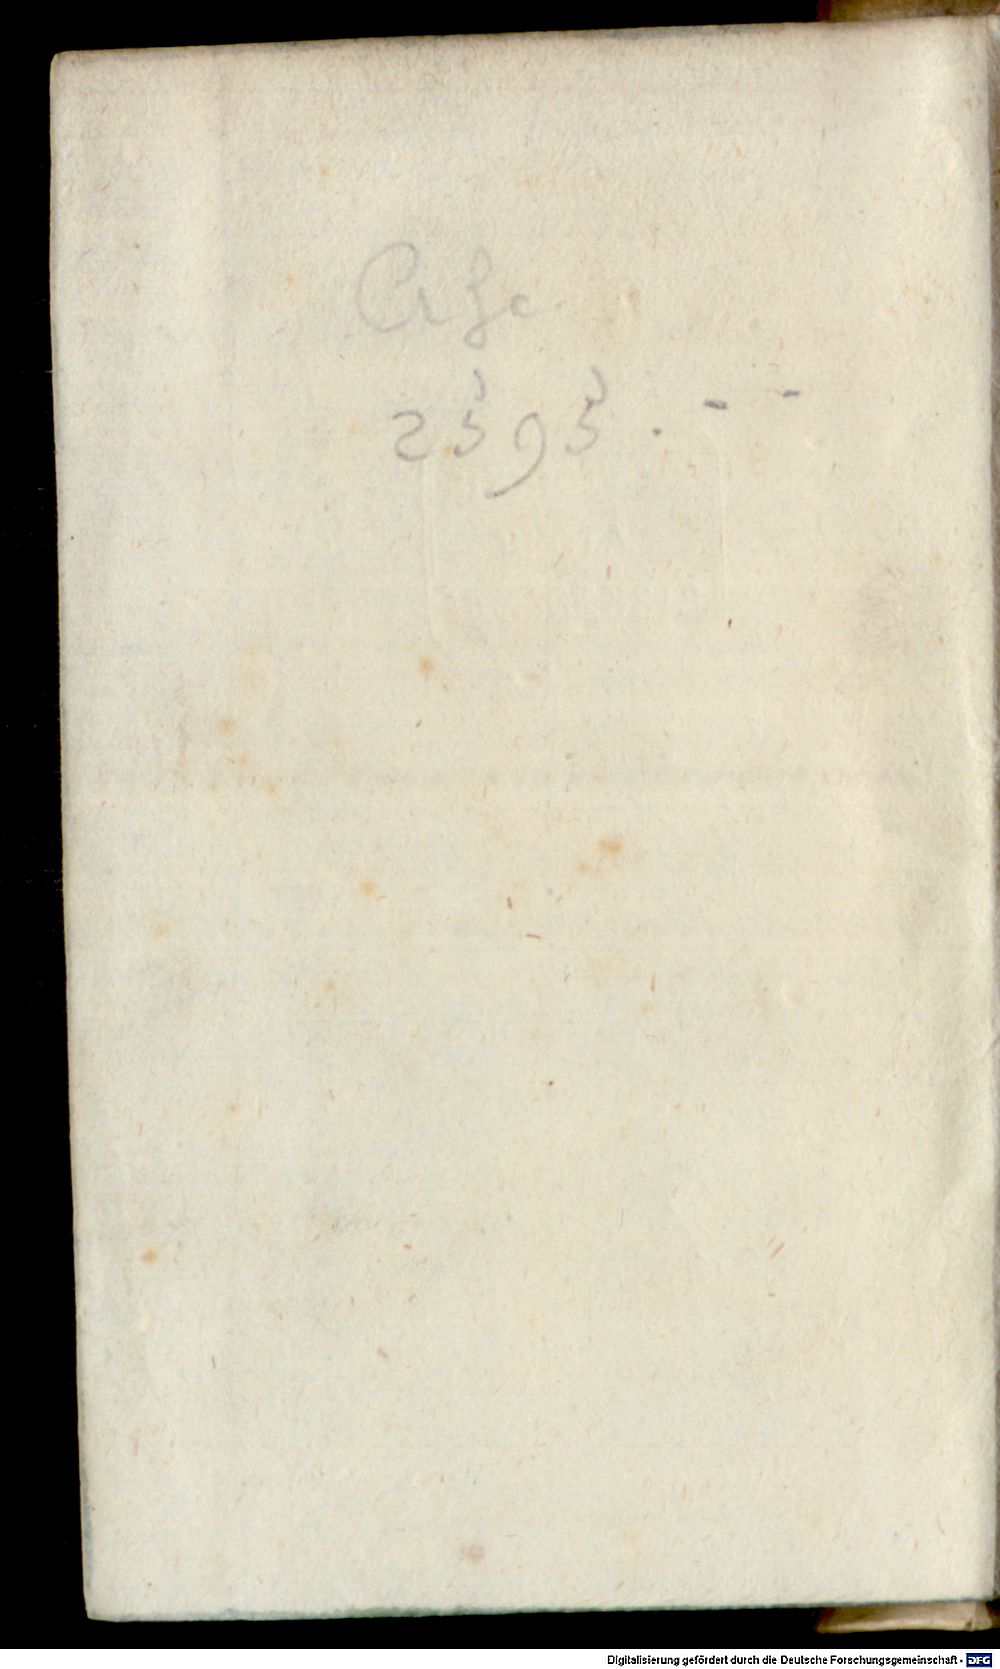 2595. - -
Digitalisierung gefördert durch die Deutsche Forschungsgemeinschaft - DFG